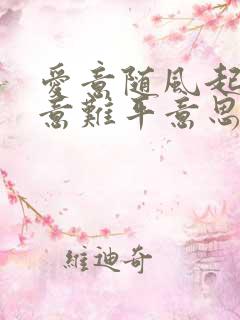 愛意随風起
意難平意思
維迪奇